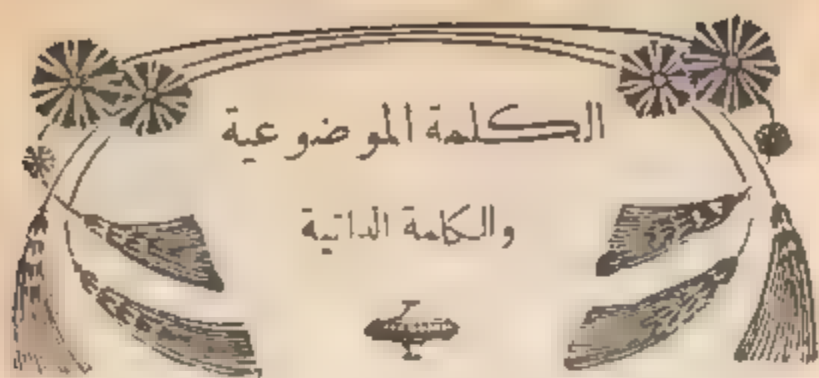 الكلمة الموضوعية
والكلمة الذاتية